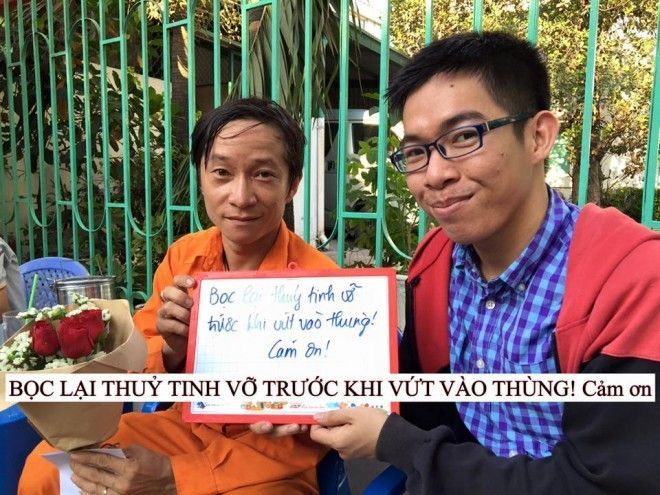 Bọc lại thuỷ tinh vỡ
trước khi vứt vào thùng!
Cảm ơn!
BỌC LẠI THUỶ TINH VỠ TRƯỚC KHI VỨT VÀO THÙNG! Cảm ơn